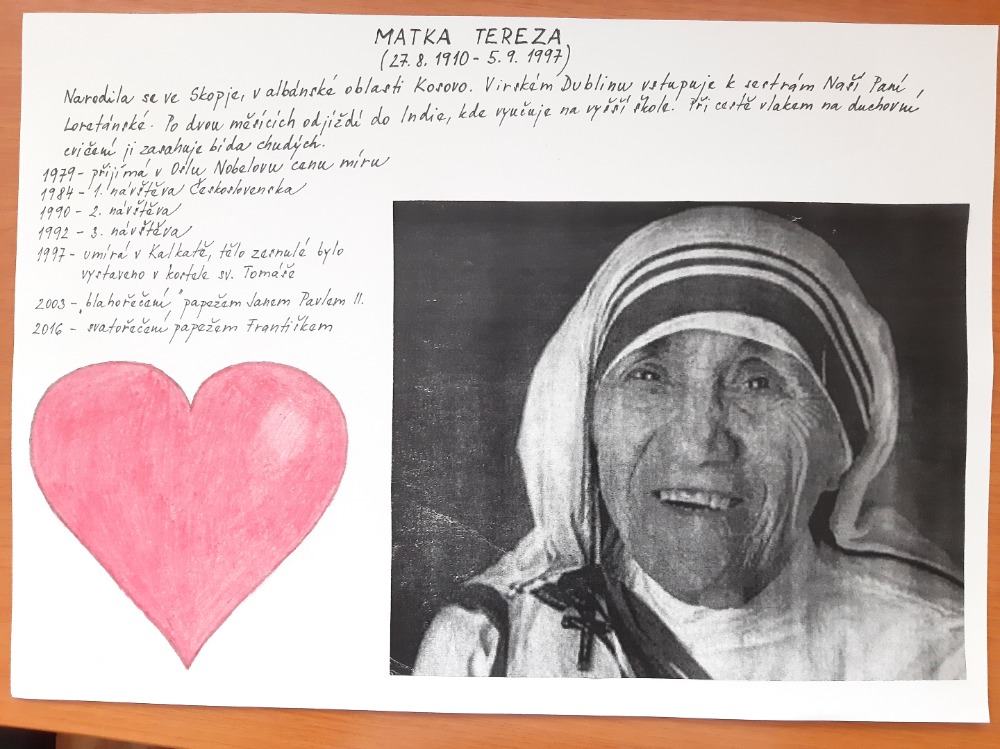 MATKA TEREZA
(27. 8. 1910 - 5. 9. 1997)
Narodila se ve Skopje, v albánské oblasti Kosovo. V irském Dublinu vstupuje k sestrám Naší Paní
Loretánské. Po dvou měsících odjíždí do Indie, kde vyučuje na vyšší škole. Při cestě vlakem na duchovní
cvičení ji zasahuje bída chudých.
1979 - přijímá v Oslu Nobelovu cenu míru
1984 - 1. návštěva Československa
1990 - 2. návštěva
1992 - 3. návštěva
1997 - umírá v Kalkatě, tělo zesnulé bylo
vystaveno v kostele sv. Tomáše
2003 - „blahořečení" papežem Janem Pavlem II.
2016 - svatořečení papežem Františkem